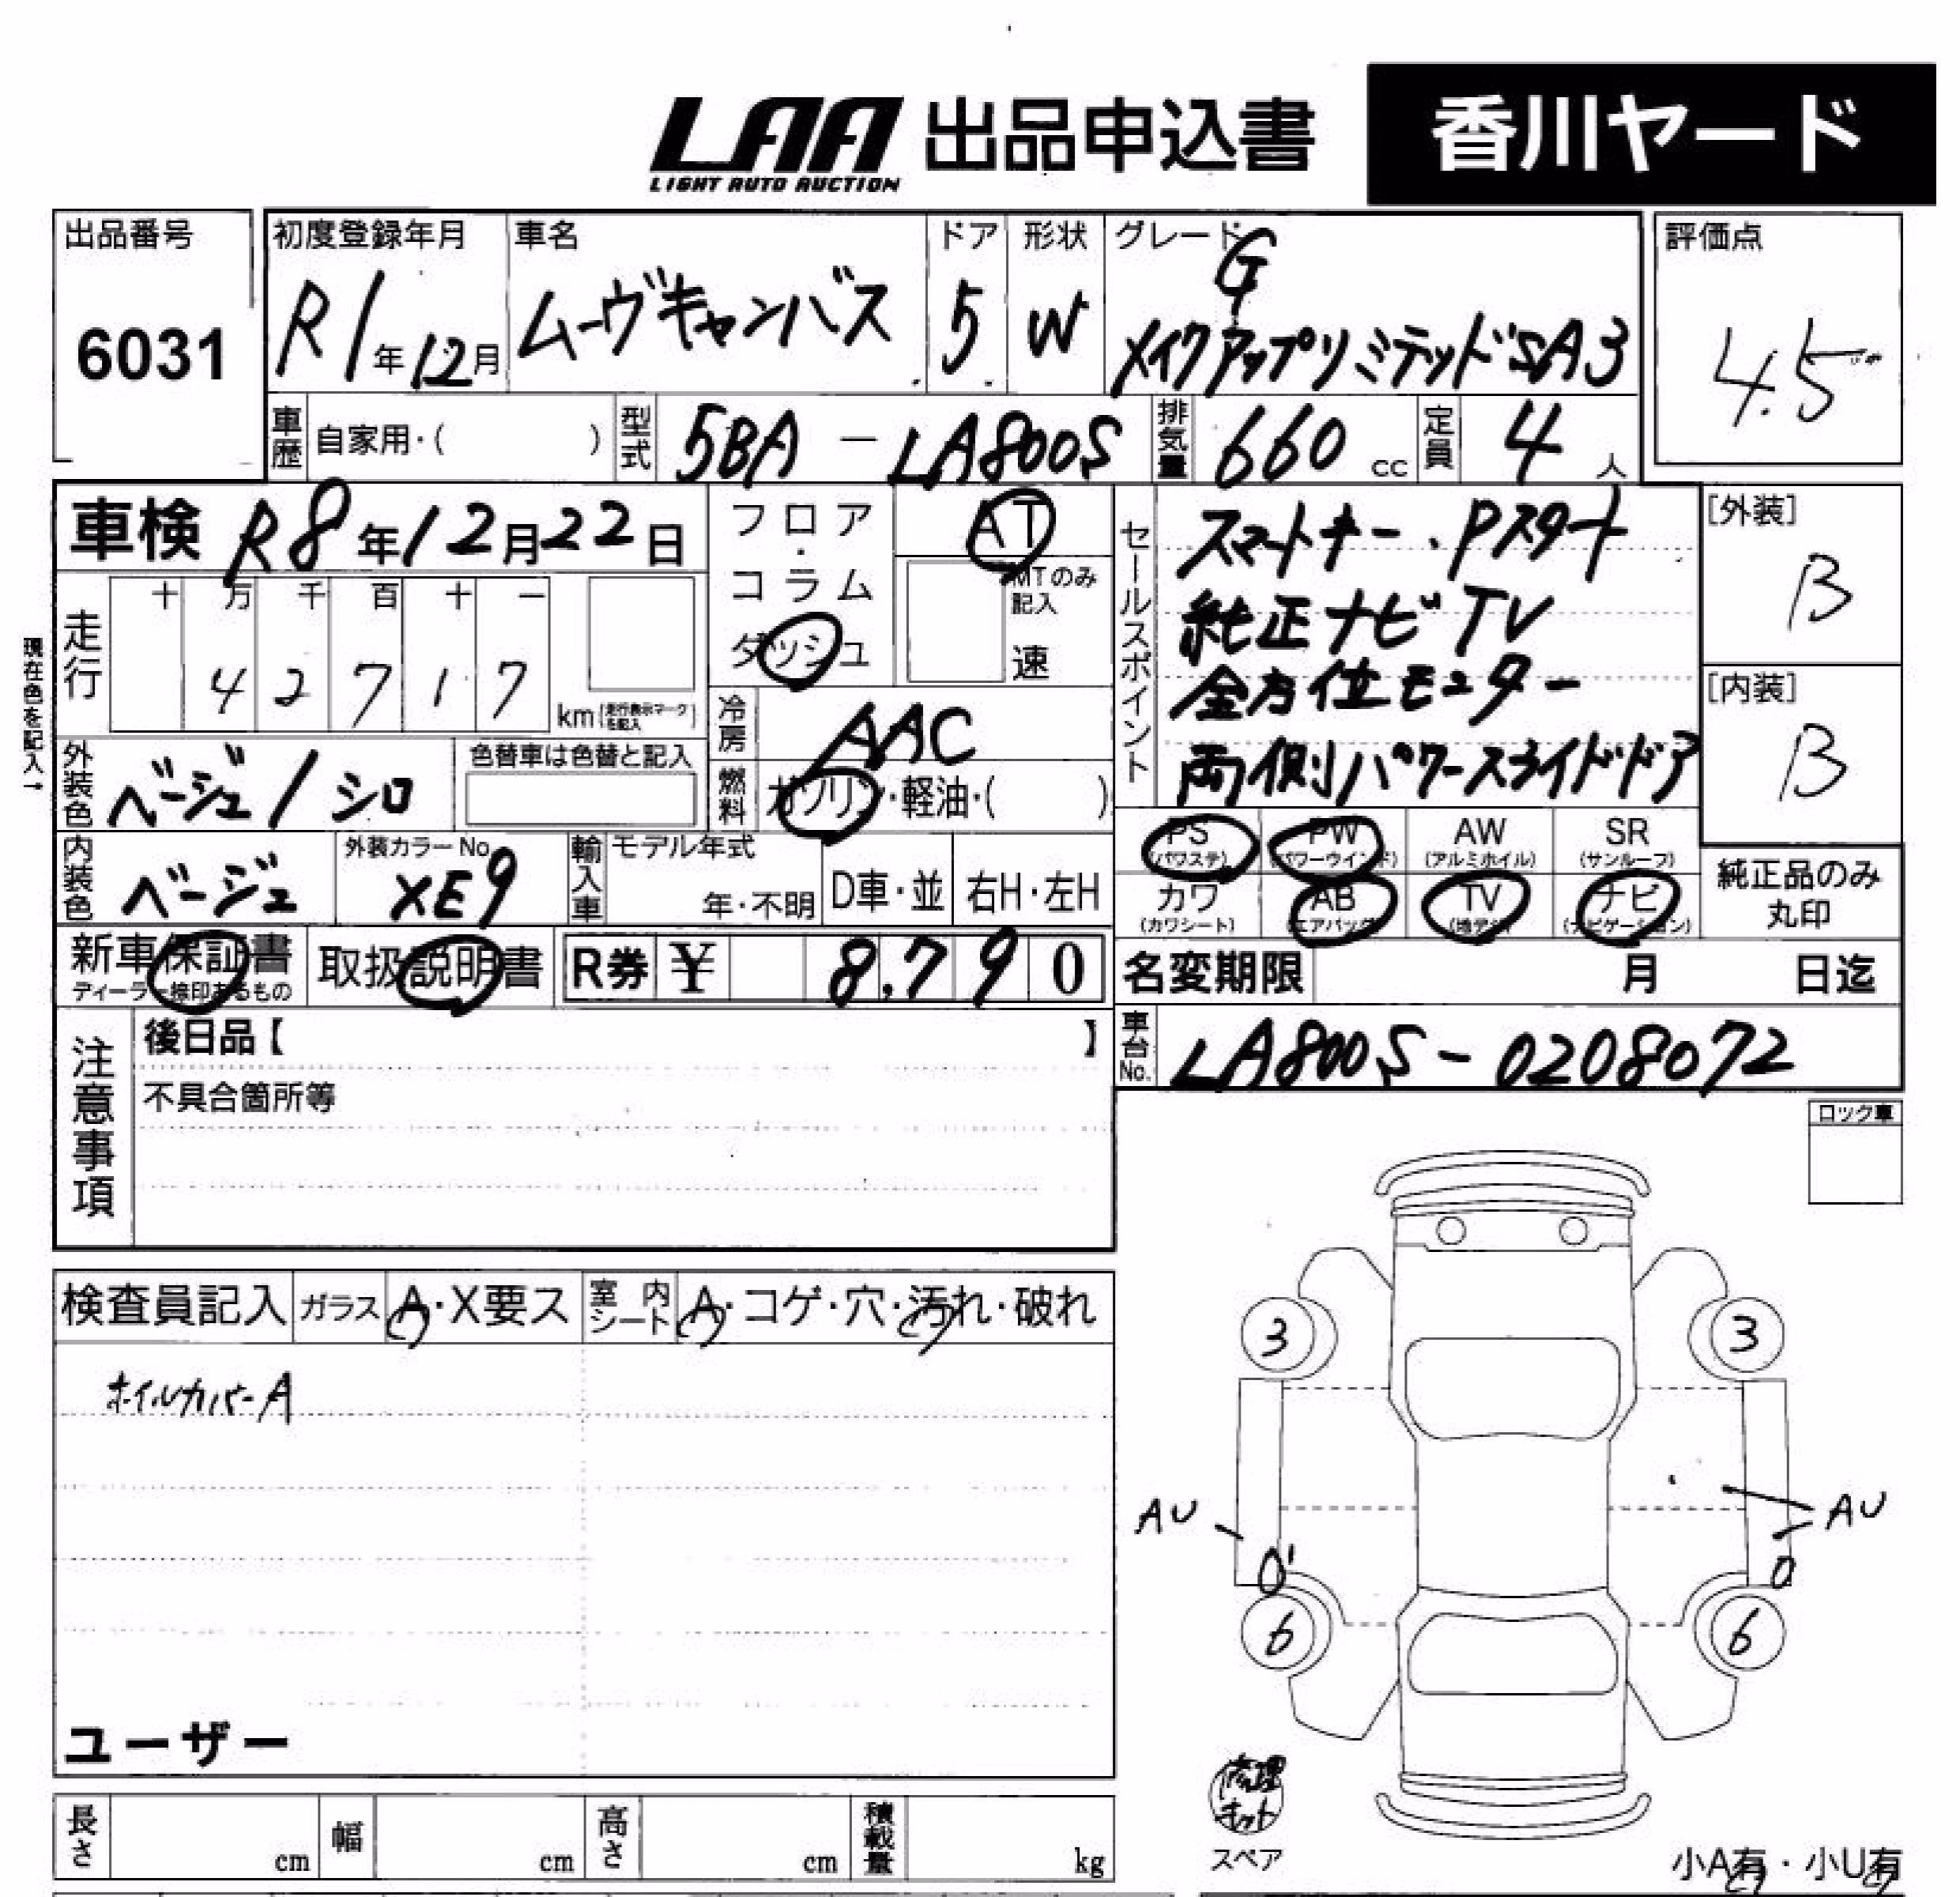 LAA 出品申込書 香川ヤード
LIGHT AUTO AUCTION
出品番号 6031
初度登録年月 R1年12月
車名 ムーヴキャンバス
ドア 5
形状 W
グレード G
メイクアップリミテッドSA3
評価点 4.5
車歴 自家用・( )
型式 5BA - LA800S
排気量 660 cc
定員 4人
車検 R8年12月22日
フロア・コラム ダッシュ
AT
MTのみ記入
速
セールスポイント
スマートキー.Pスタート
純正ナビTV
全方位モニター
両側パワースライドドア
[外装] B
[内装] B
現在色を記入→
走行 十 万 千 百 十 一
4 2 7 1 7 km(走行表示マークを記入)
冷房 AAC
外装色 ベージュ/シロ
色替車は色替と記入
燃料 ガソリン・軽油・( )
内装色 ベージュ
外装カラーNo. XE9
輸入車 モデル年式
年・不明 D車・並 右H・左H
PS (パワステ) PW (パワーウインド) AW (アルミホイル) SR (サンルーフ)
カワ (カワシート) AB (エアバッグ) TV (地デジ) ナビ (ナビゲーション)
純正品のみ丸印
新車保証書
ディーラー捺印あるもの
取扱説明書
R券 ¥ 8,790
名変期限 月 日迄
車台No. LA800S-0208072
注意事項
後日品【 】
不具合箇所等
ロック車
検査員記入 ガラス A・X要ス 室内シート A・コゲ・穴・汚れ・破れ
ホイルカバーA
3 3
AU AU
0' 0
6 6
ユーザー
修理キット
スペア
長さ cm 幅 cm 高さ cm 積載量 kg
小A有・小U有